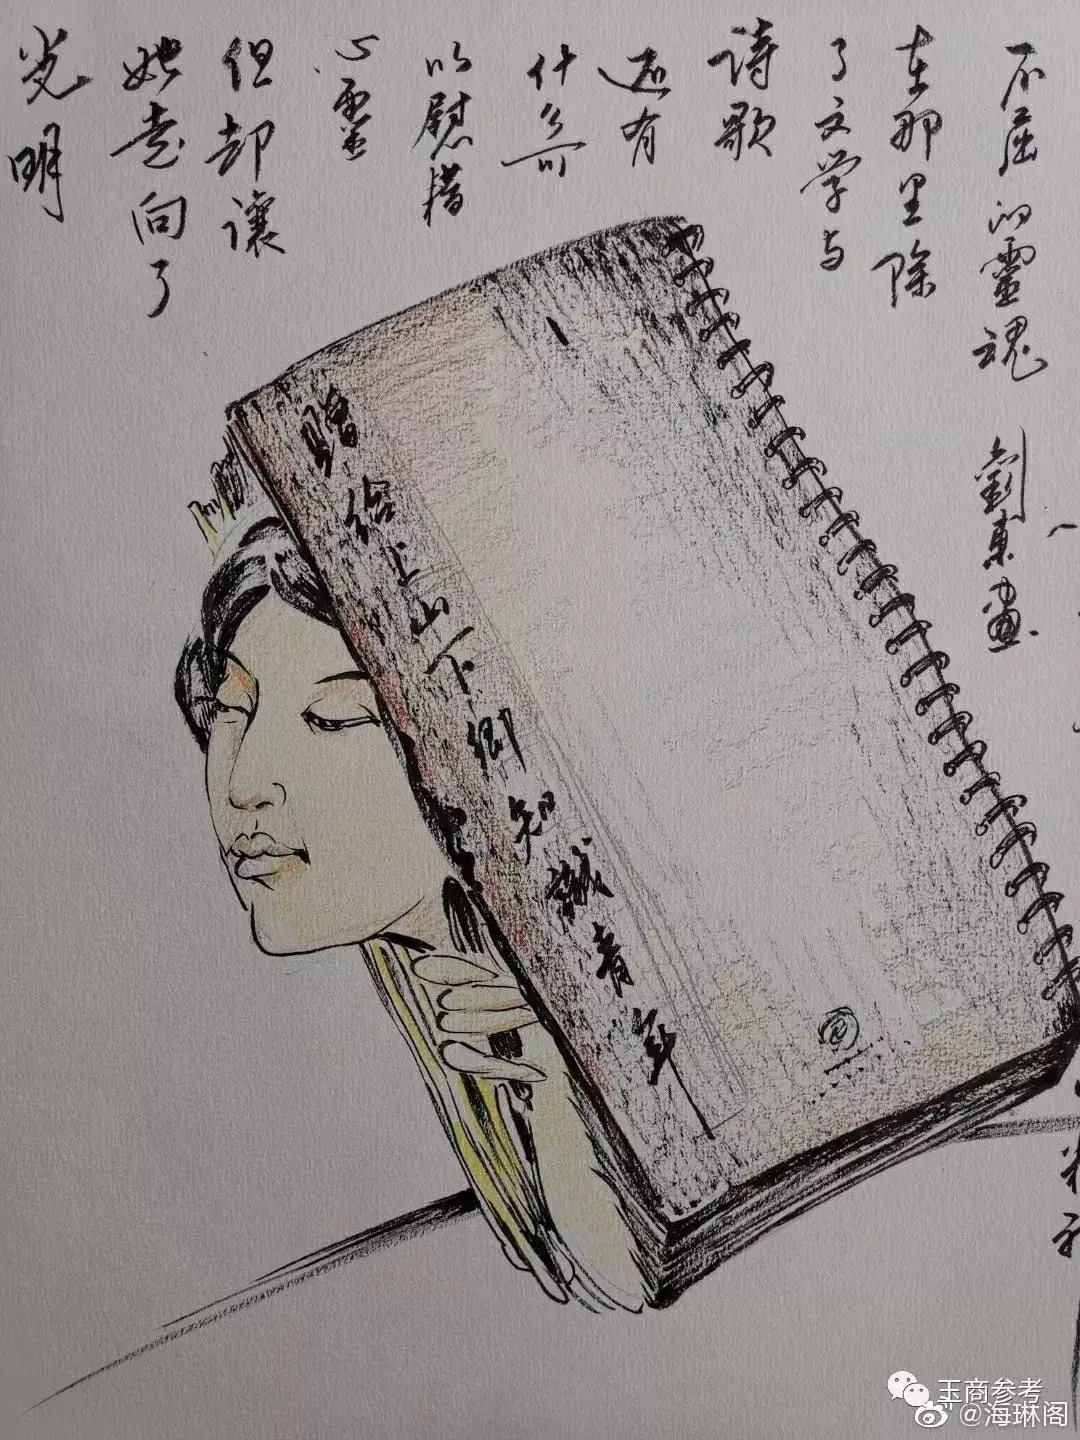 不屈的靈魂 劉東畫
在那里除
了文学与
诗歌
还有
什么可
以慰措
心靈
但却讓
她走向了
光明
贈给上山下鄉知識青年
玉商参考
@海琳阁